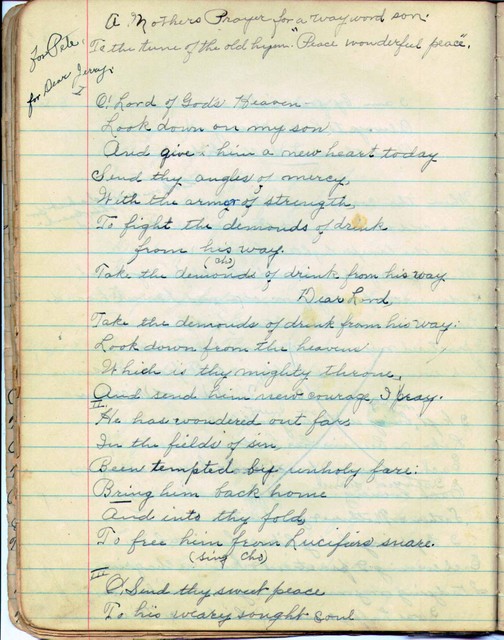 A Mothers Prayer for a wayword son.
To the tune of the old hymn "Peace wonderful peace".
For Pete.
for Dear Jerry.
I
O! Lord of Gods Heaven
Look down on my son
And give him a new heart today
Send thy angles of mercy
With the armor of strength
To fight the demonds of drink
from his way.
(cho)
Take the demonds of drink from his way
Dear Lord
Take the demonds of drink from his way:
Look down from the heaven
Which is thy mighty throne,
And send him new courage, I pray.
II
He has wondered out far
In the fields of sin
Been tempted by unholy fare:
Bring him back home
And into thy fold,
To free him from Lucifers snare.
(sing Cho)
III
O, Send thy sweet peace
To his weary sought soul